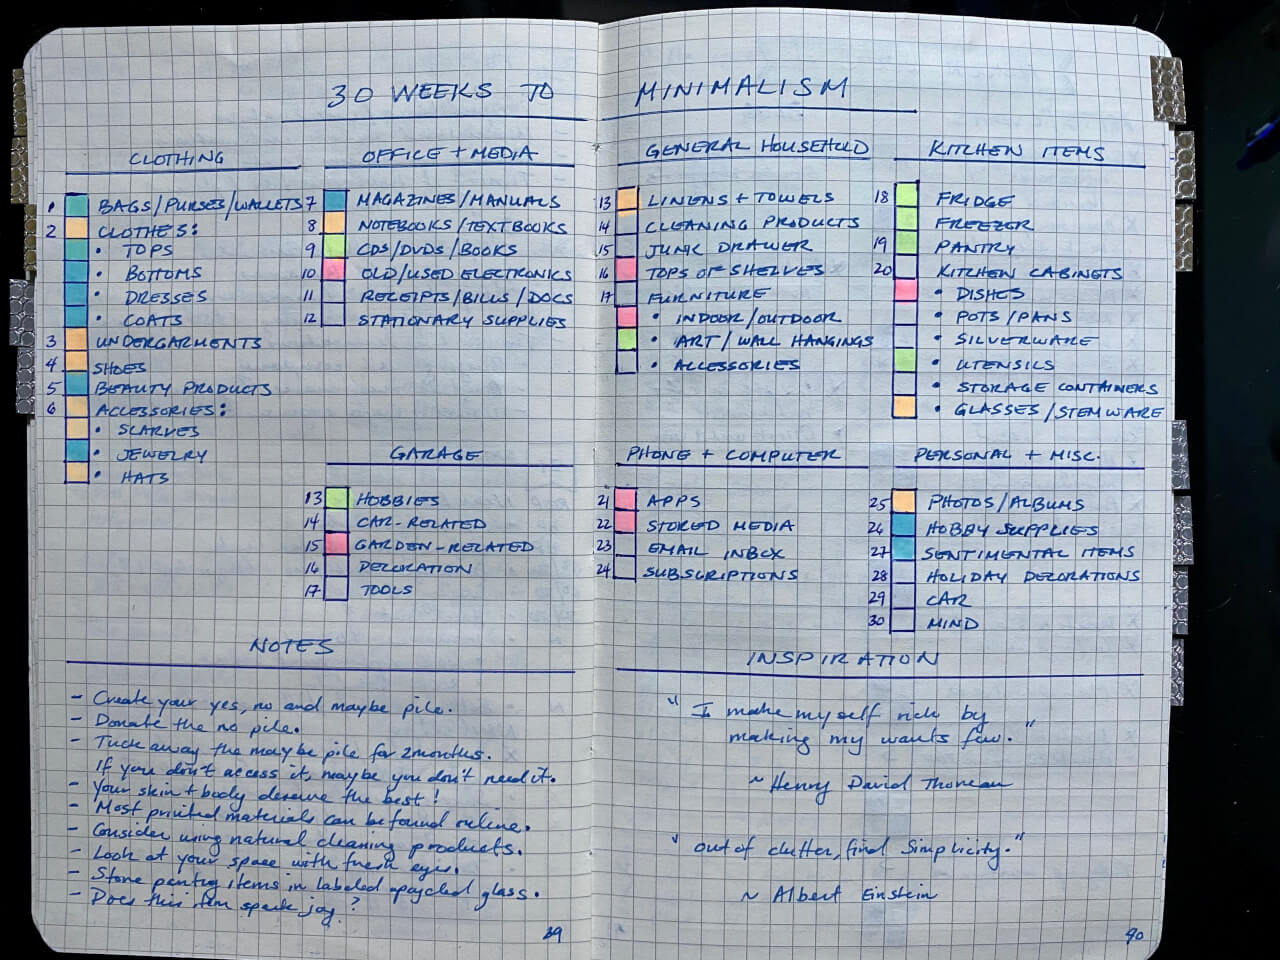 30 WEEKS TO MINIMALISM
CLOTHING
1 BAGS/PURSES/WALLETS
2 CLOTHES:
• TOPS
• BOTTOMS
• DRESSES
• COATS
3 UNDERGARMENTS
4 SHOES
5 BEAUTY PRODUCTS
6 ACCESSORIES:
• SCARVES
• JEWELRY
• HATS
OFFICE + MEDIA
7 MAGAZINES/MANUALS
8 NOTEBOOKS/TEXTBOOKS
9 CDS/DVDS/BOOKS
10 OLD/USED ELECTRONICS
11 RECEIPTS/BILLS/DOCS
12 STATIONARY SUPPLIES
GARAGE
13 HOBBIES
14 CAR-RELATED
15 GARDEN-RELATED
16 DECORATION
17 TOOLS
NOTES
- Create your yes, no and maybe pile.
- Donate the no pile.
- Tuck away the maybe pile for 2 months.
If you don't access it, maybe you don't need it.
- Your skin + body deserve the best!
- Most printed materials can be found online.
- Consider using natural cleaning products.
- Look at your space with fresh eyes.
- Store pantry items in labeled upcycled glass.
- Does this item spark joy?
39
GENERAL HOUSEHOLD
13 LINENS + TOWELS
14 CLEANING PRODUCTS
15 JUNK DRAWER
16 TOPS OF SHELVES
17 FURNITURE
• INDOOR/OUTDOOR
• ART/WALL HANGINGS
• ACCESSORIES
KITCHEN ITEMS
18 FRIDGE
FREEZER
19 PANTRY
20 KITCHEN CABINETS
• DISHES
• POTS/PANS
• SILVERWARE
• UTENSILS
• STORAGE CONTAINERS
• GLASSES/STEMWARE
PHONE + COMPUTER
21 APPS
22 STORED MEDIA
23 EMAIL INBOX
24 SUBSCRIPTIONS
PERSONAL + MISC.
25 PHOTOS/ALBUMS
26 HOBBY SUPPLIES
27 SENTIMENTAL ITEMS
28 HOLIDAY DECORATIONS
29 CAR
30 MIND
INSPIRATION
"I make myself rich by
making my wants few."
~ Henry David Thoreau
"out of clutter, find simplicity."
~ Albert Einstein
40